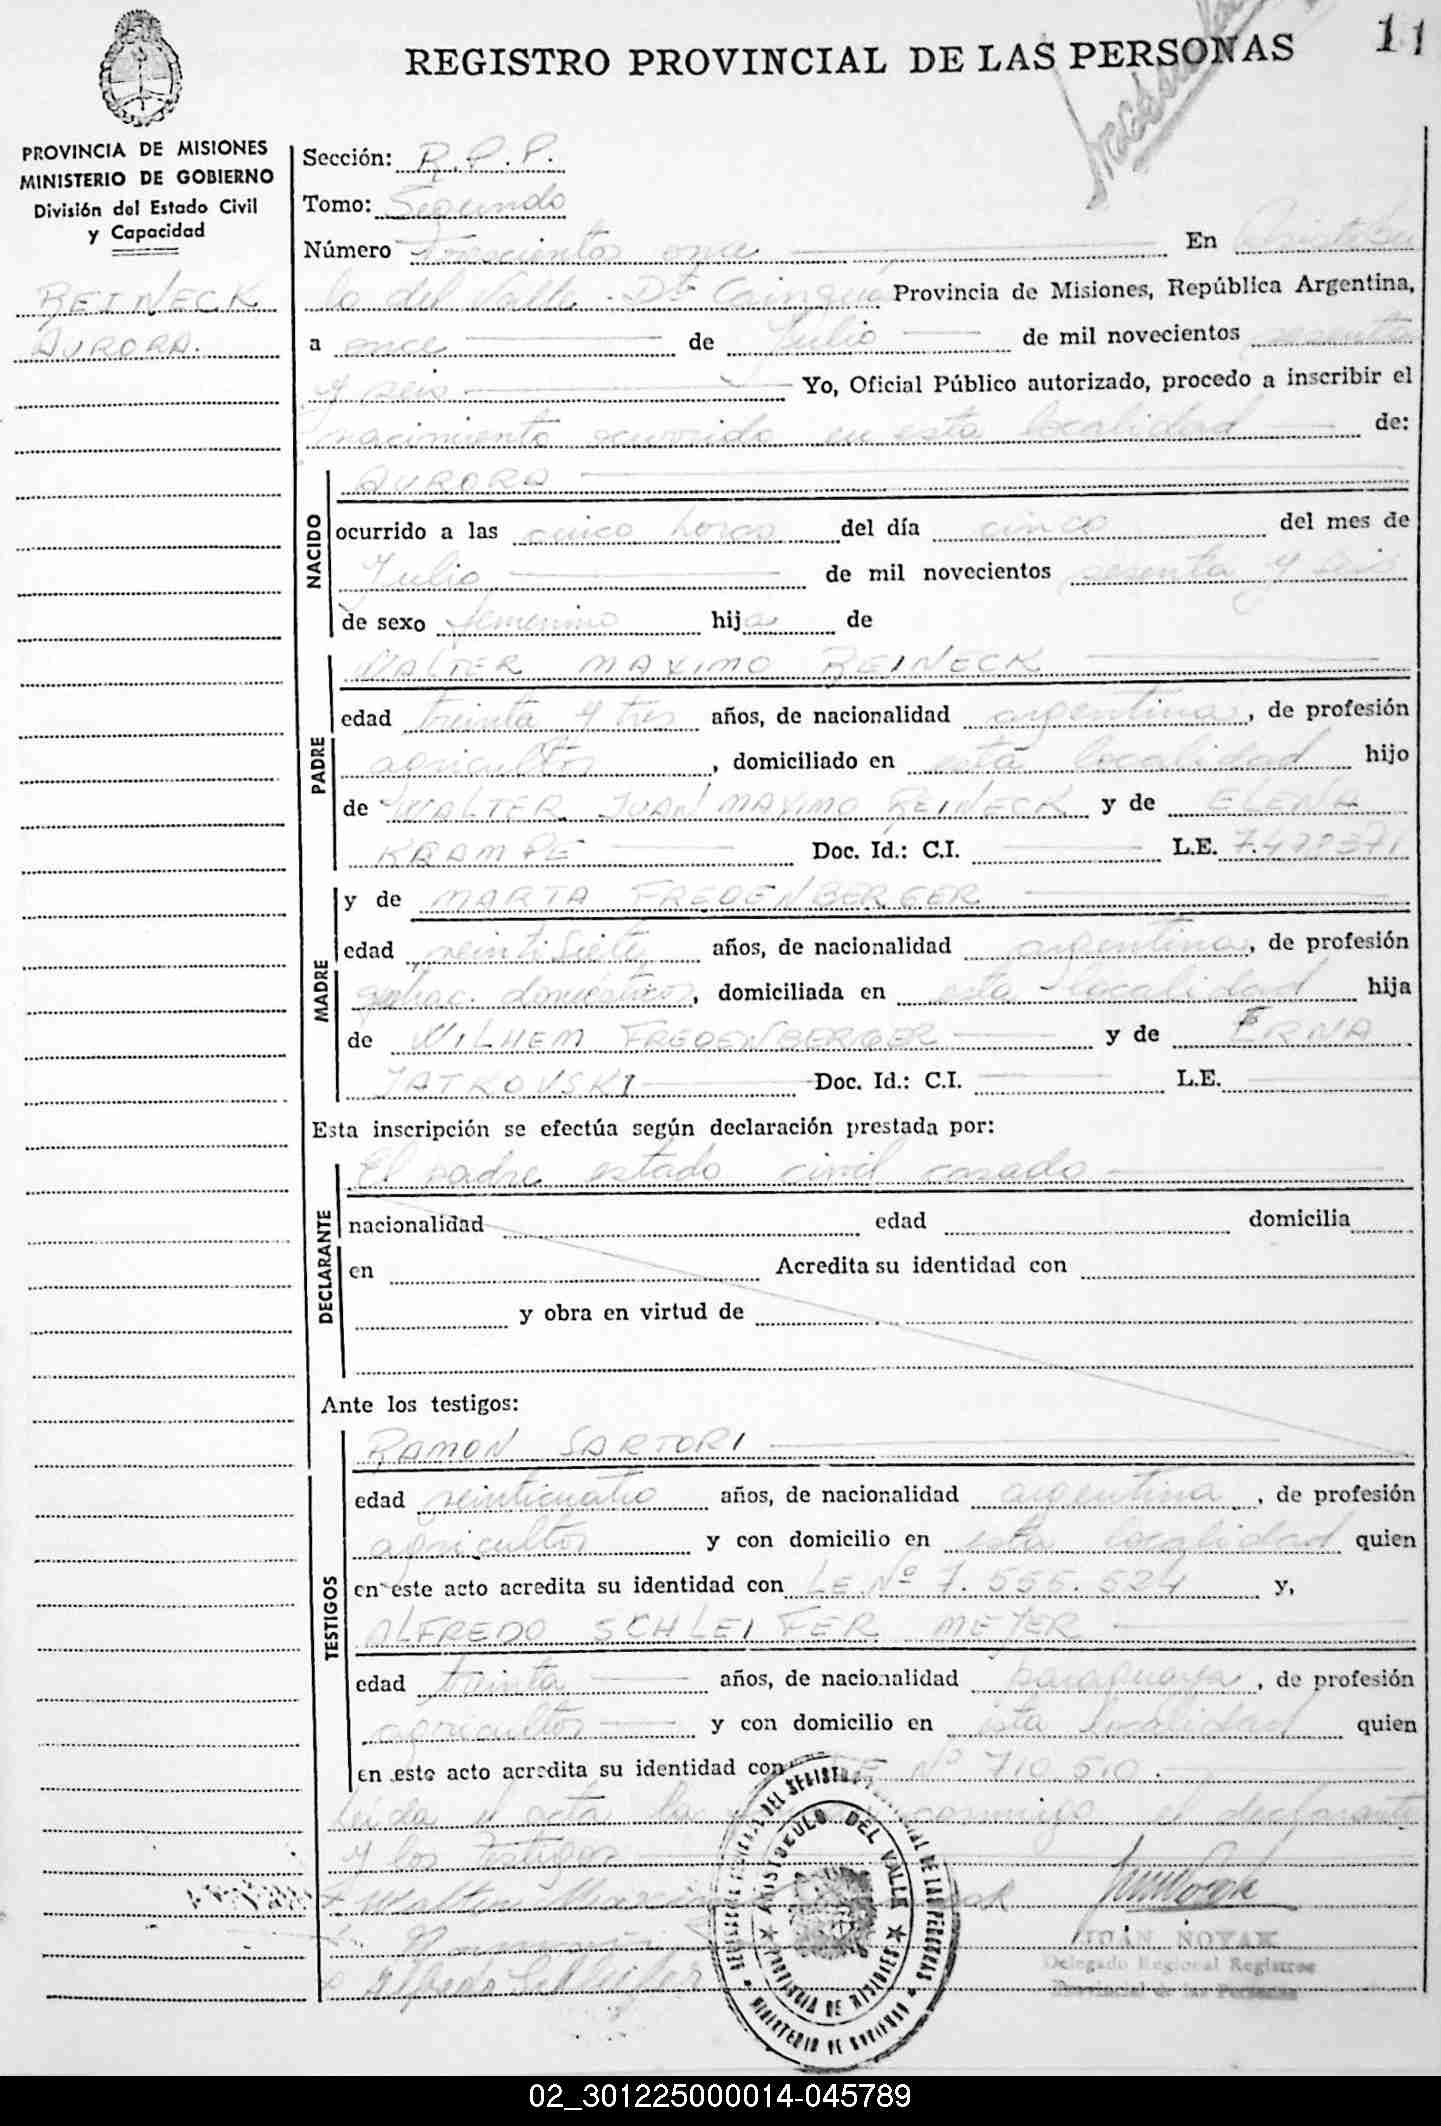 REGISTRO PROVINCIAL DE LAS PERSONAS 11
PROVINCIA DE MISIONES
MINISTERIO DE GOBIERNO
División del Estado Civil
y Capacidad
REINECK
AURORA.
Sección: R.P.P.
Tomo: Segundo
Número trescientos once En Aristóbu
lo del Valle - Dto Cainguá Provincia de Misiones, República Argentina,
a once de Julio de mil novecientos sesenta
y seis Yo, Oficial Público autorizado, procedo a inscribir el
nacimiento ocurrido en esta localidad de:
NACIDO
AURORA
ocurrido a las cinco horas del día cinco del mes de
Julio de mil novecientos sesenta y seis
de sexo femenino hija de
PADRE
WALTER MAXIMO REINECK
edad treinta y tres años, de nacionalidad argentina, de profesión
agricultor, domiciliado en esta localidad hijo
de WALTER JUAN MAXIMO REINECK y de ELENA
KRAMPE Doc. Id.: C.I. L.E. 7.472371
MADRE
y de MARTA FREDENBERGER
edad veintisiete años, de nacionalidad argentina, de profesión
quehac. domésticos, domiciliada en esta localidad hija
de WILHEM FREDENBERGER y de ERNA
JATKOVSKI Doc. Id.: C.I. L.E.
Esta inscripción se efectúa según declaración prestada por:
DECLARANTE
El padre estado civil casado
nacionalidad edad domicilia
en Acredita su identidad con
y obra en virtud de
Ante los testigos:
TESTIGOS
RAMON SARTORI
edad veinticuatro años, de nacionalidad argentina, de profesión
agricultor y con domicilio en esta localidad quien
en este acto acredita su identidad con LE.Nº 7.555.524 y,
ALFREDO SCHLEIFER MEYER
edad treinta años, de nacionalidad paraguaya, de profesión
agricultor y con domicilio en esta localidad quien
en este acto acredita su identidad con Nº 710.510.
Leída el acta la conmigo el declarante
y los testigos
Walter
Alfredo Schleifer
ARISTOBULO DEL VALLE
PROVINCIA DE MISIONES
MINISTERIO DE GOBIERNO
JUAN NOVAK
Delegado Regional Registro
Provincial de las Personas
02_301225000014-045789